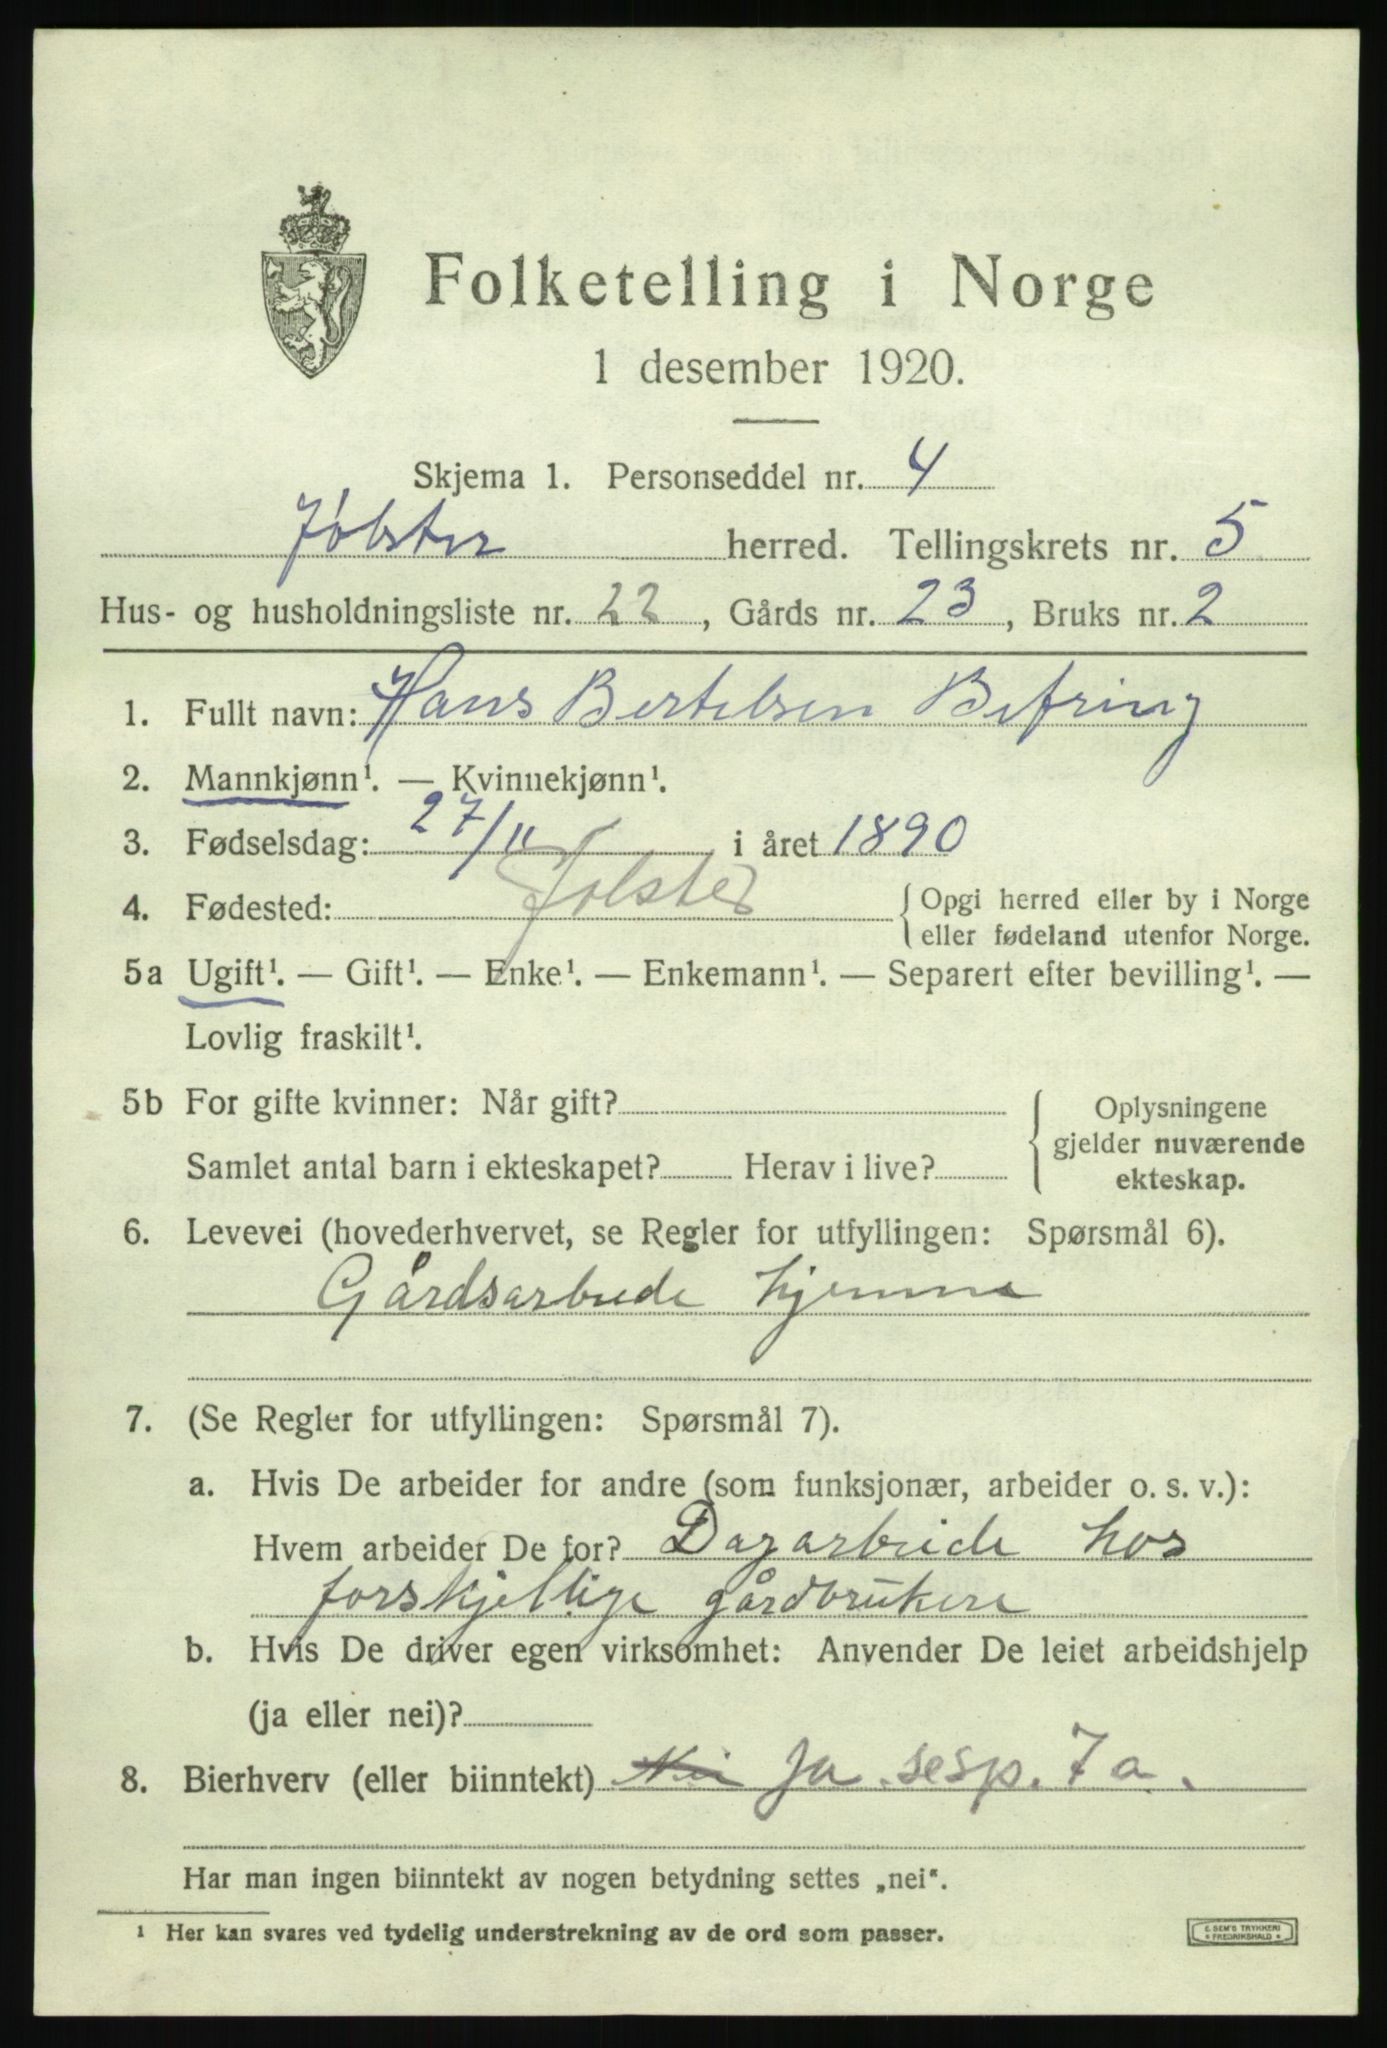 Folketelling i Norge
1 desember 1920.
Skjema 1. Personseddel nr. 4
Jølster herred. Tellingskrets nr. 5
Hus- og husholdningsliste nr. 22, Gårds nr. 23, Bruks nr. 2
1. Fullt navn: Hans Bertelsen Befring
2. Mannkjønn¹. — Kvinnekjønn¹.
3. Fødselsdag: 27/11 i året 1890
4. Fødested: Jølster { Opgi herred eller by i Norge
eller fødeland utenfor Norge.
5a Ugift¹. — Gift¹. — Enke¹. — Enkemann¹. — Separert efter bevilling¹. —
Lovlig fraskilt¹.
5b For gifte kvinner: Når gift? { Oplysningene
gjelder nuværende
Samlet antal barn i ekteskapet? Herav i live? ekteskap.
6. Levevei (hovederhvervet, se Regler for utfyllingen: Spørsmål 6).
Gårdsarbeide hjemme
7. (Se Regler for utfyllingen: Spørsmål 7).
a. Hvis De arbeider for andre (som funksjonær, arbeider o. s. v.):
Hvem arbeider De for? Dagarbeide hos
forskjellige gårdbrukere
b. Hvis De driver egen virksomhet: Anvender De leiet arbeidshjelp
(ja eller nei)?
8. Bierhverv (eller biinntekt) Nei Ja. sesp. 7 a.
Har man ingen biinntekt av nogen betydning settes „nei“.
¹ Her kan svares ved tydelig understrekning av de ord som passer.
E. SEM'S TRYKKERI
* FREDRIKSHALD *